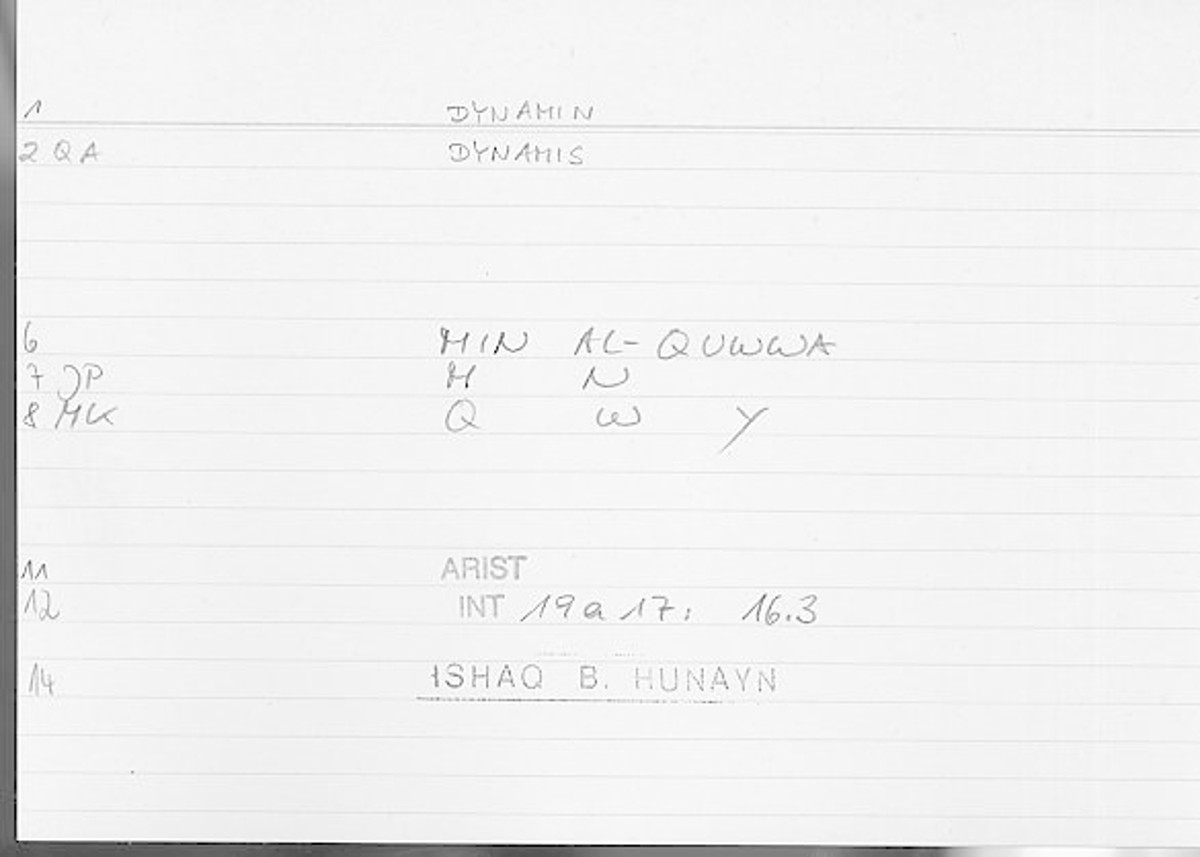 1 DYNAMIN
2 QA DYNAMIS
6 MIN AL-QUWWA
7 JP M N
8 MK Q W Y
11 ARIST
12 INT 19a17: 16.3
14 ISHAQ B. HUNAYN